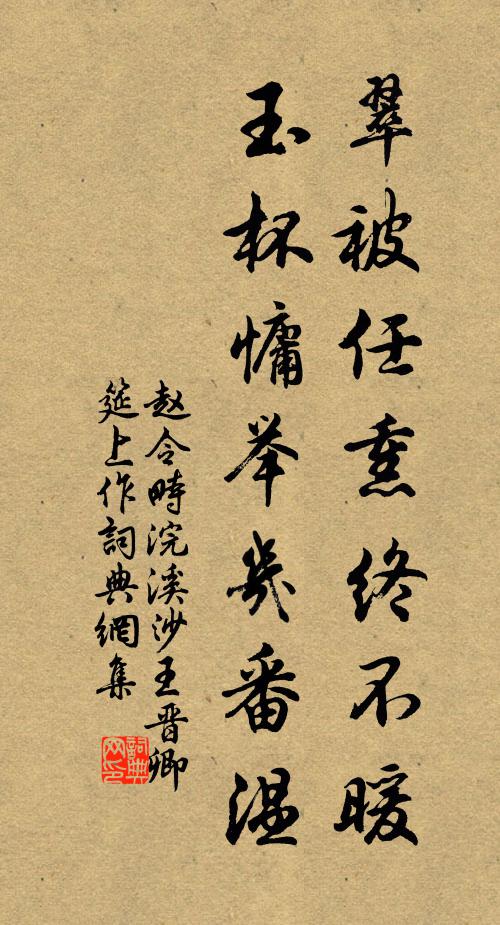 翠被任熏终不暖
玉杯慵举几番温
赵令畤浣溪沙王晋卿
筵上作詞典網集
詞典网印